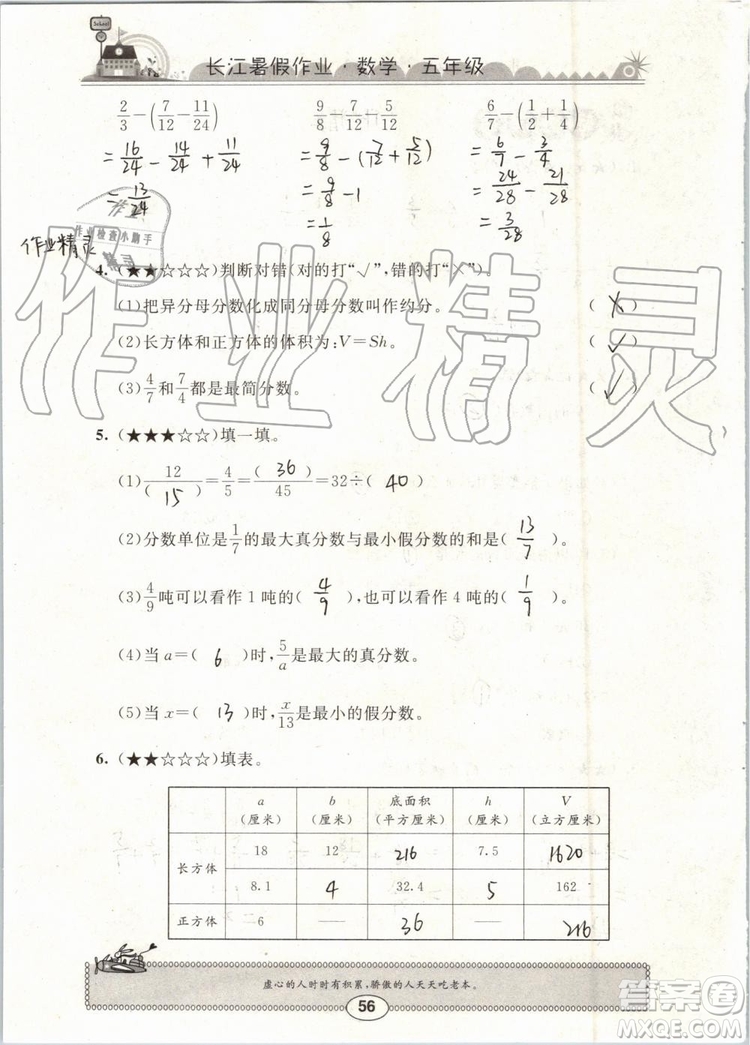 School
长江暑假作业·数学·五年级
2/3-(7/12-11/24)    9/8-7/12-5/12    6/7-(1/2+1/4)
=16/24-14/24+11/24    =9/8-(7/12+5/12)    =6/7-3/4
=13/24    =9/8-1    =24/28-21/28
=1/8    =3/28
作业
作业检查小助手
精灵
作业精灵
4. (★★☆☆☆)判断对错(对的打"√",错的打"×")
(1)把异分母分数化成同分母分数叫作约分。 (×)
(2)长方体和正方体的体积为:V=Sh。 (√)
(3)4/7和7/4都是最简分数。 (√)
作业精灵
5. (★★★☆☆)填一填。
(1)12/(15)=4/5=(36)/45=32÷(40)
(2)分数单位是1/7的最大真分数与最小假分数的和是(13/7)。
(3)4/9吨可以看作1吨的(4/9),也可以看作4吨的(1/9)。
(4)当a=(6)时,5/a是最大的真分数。
(5)当x=(13)时,x/13是最小的假分数。
6. (★★☆☆☆)填表。
a(厘米) b(厘米) 底面积(平方厘米) h(厘米) V(立方厘米)
长方体 18 12 216 7.5 1620
8.1 4 32.4 5 162
正方体 6 — 36 — 216
虚心的人时时有积累,骄傲的人天天吃老本。
56
答案圈
MXQE.COM